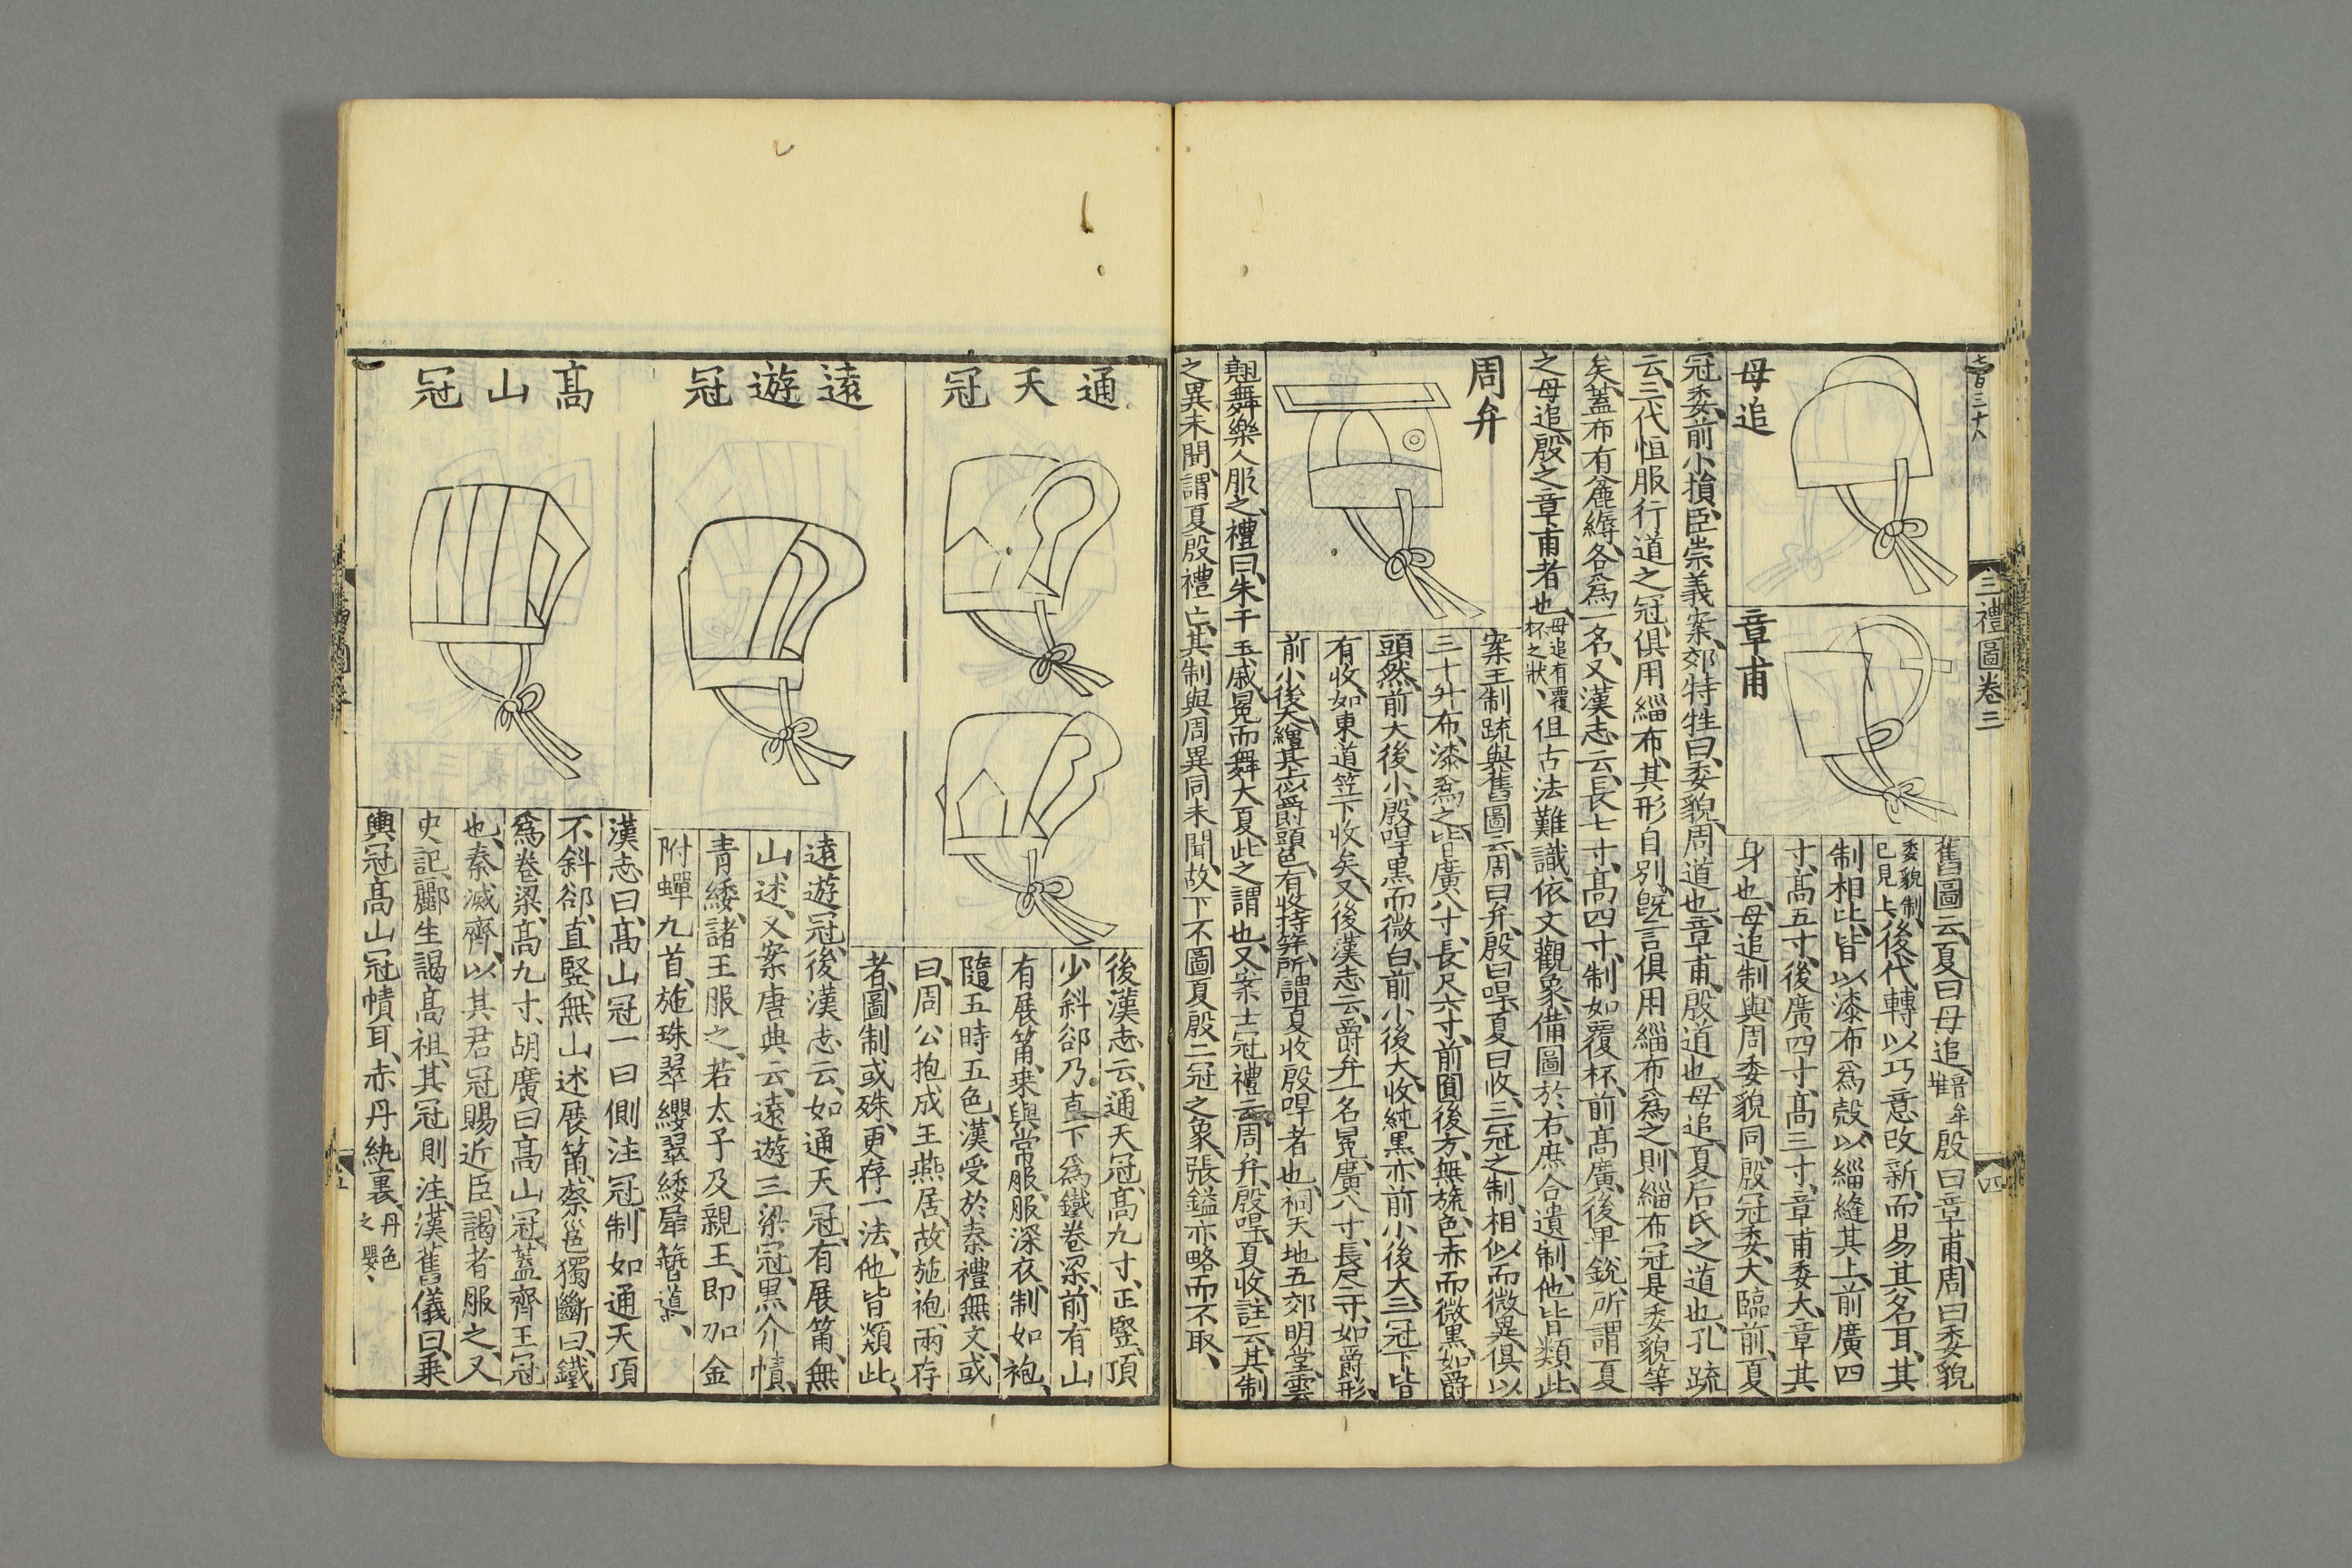 三禮圖卷三
四
母追
章甫
舊圖云夏曰母追音牟堆殷曰章甫周曰委貌
委貌制已見上後代轉以巧意改新而易其名耳其
制相比皆以漆布爲殼以緇縫其上前廣四
寸高五寸後廣四寸高三寸章甫委大章其
身也母追制與周委貌同殷冠委大臨前夏
冠委前小損臣崇義案郊特牲曰委貌周道也章甫殷道也母追夏后氏之道也孔疏
云三代恒服行道之冠俱用緇布其形自別既言俱用緇布爲之則緇布冠是委貌等
矣蓋布有麄縟各爲一名又漢志云長七寸高四寸制如覆杯前高廣後卑銳所謂夏
之母追殷之章甫者也母追有覆杯之狀但古法難識依文觀象備圖於右庶合遺制他皆類此
周弁
案王制疏與舊圖云周曰弁殷曰冔夏曰收三冠之制相似而微異俱以
三十升布漆爲之皆廣八寸長尺六寸前圓後方無旒色赤而微黑如爵
頭然前大後小殷冔黑而微白前小後大收純黑亦前小後大三冠下皆
有收如東道笠下收矣又後漢志云爵弁一名冕廣八寸長尺二寸如爵形
前小後大繒其上似爵頭色有收持笄所謂夏收殷冔者也祠天地五郊明堂雲
翹舞樂人服之禮曰朱干玉戚冕而舞大夏此之謂也又案士冠禮云周弁殷冔夏收註云其制
之異未聞謂夏殷禮亡其制與周異同未聞故下不圖夏殷二冠之象張鎰亦略而不取
通天冠
後漢志云通天冠高九寸正豎頂
少斜郤乃直下爲鐵卷梁前有山
有展筩乗輿常服服深衣制如袍
隨五時五色漢受於秦禮無文或
曰周公抱成王燕居故施袍兩存
者圖制或殊更存一法他皆類此
遠遊冠
遠遊冠後漢志云如通天冠有展筩無
山述又案唐典云遠遊三梁冠黑介幘
青緌諸王服之若太子及親王即加金
附蟬九首施珠翠纓翠緌犀簪導
高山冠
漢志曰高山冠一曰側注冠制如通天頂
不斜郤直豎無山述展筩蔡邕獨斷曰鐵
爲卷梁高九寸胡廣曰高山冠蓋齊王冠
也秦滅齊以其君冠賜近臣謁者服之又
史記酈生謁高祖其冠則注漢舊儀曰乗
輿冠高山冠幘耳赤丹紈裏丹色之嬰